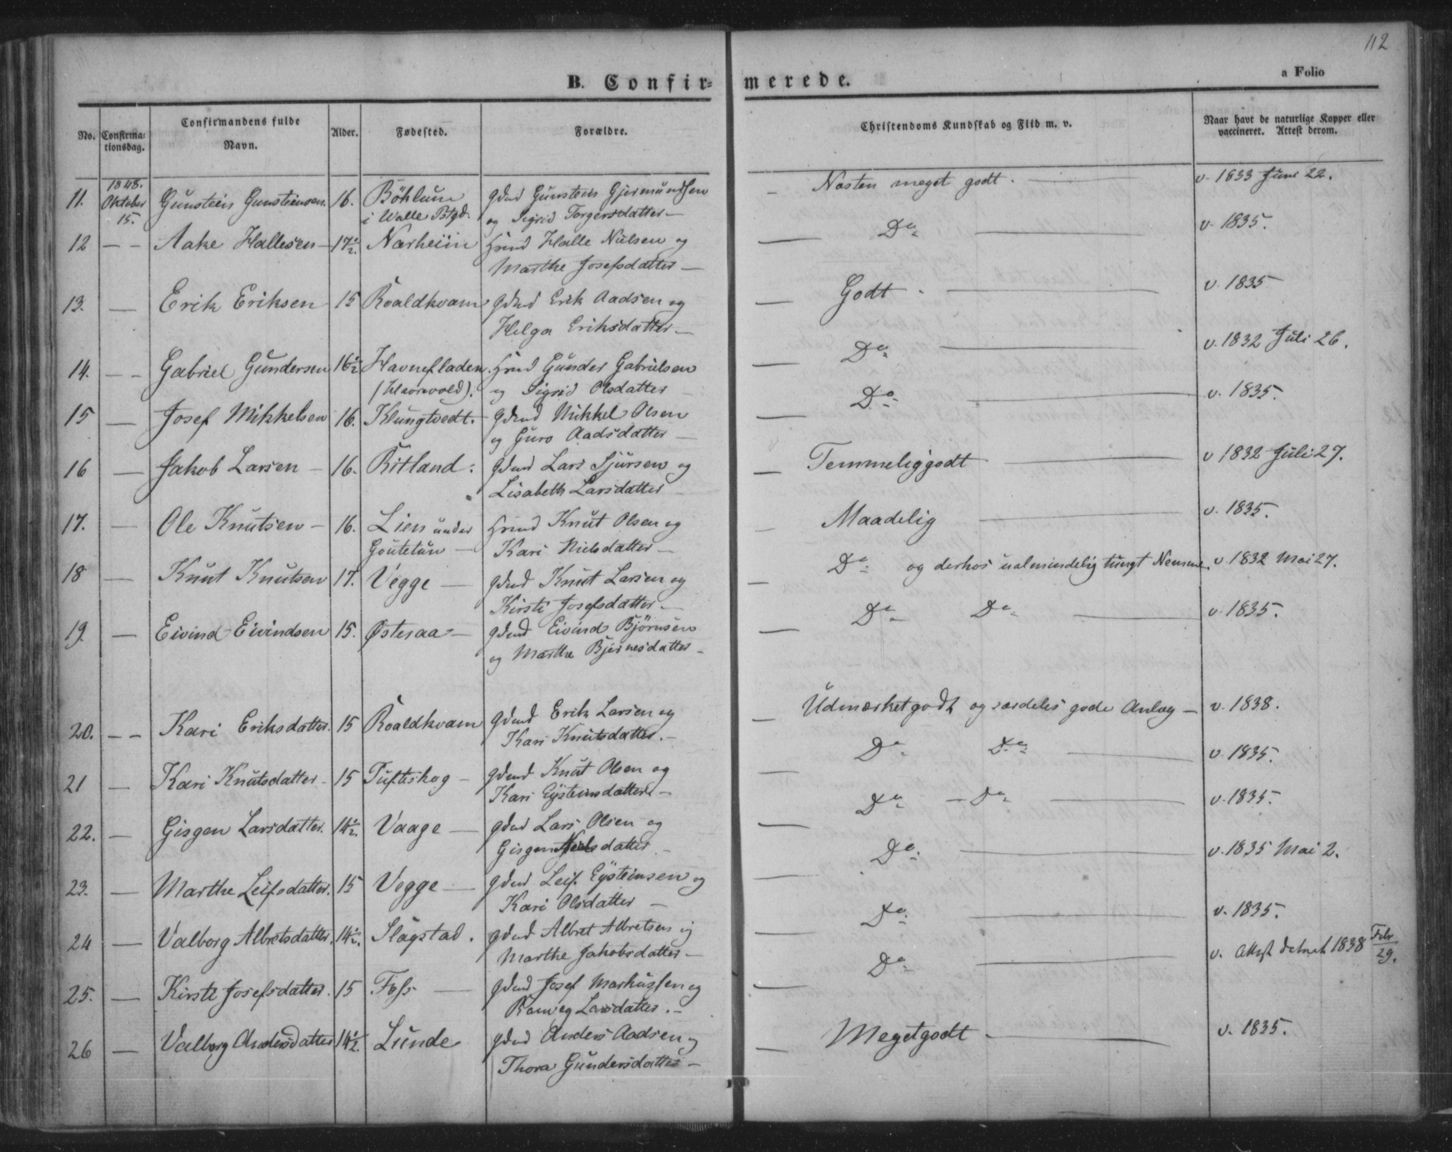 112
B. Confirmerede.
a Folio
No. Confirmationsdag. Confirmandens fulde Navn. Alder. Fødested. Forældre. Christendoms Kundskab og Flid m. v. Naar havt de naturlige Kopper eller vaccineret. Attest derom.
1848.
11. Oktober 15. Gunstein Gunsteinsen. 16. Böhlum Gdmd Gunstein Gjermundsen - Næsten meget godt - v. 1833 Juni 22.
i Walle Pstgd. og Sigrid Torgersdatter -
12 - - Aake Hallesen - 17½ Nærheim Hmd Halle Nielsen og — Do — v. 1835.
Marthe Josefsdatter -
13. — Erik Eriksen 15 Roaldkvam Gdmd Erik Aadsen og — Godt — v. 1835
Helga Eriksdatter -
14. - - Gabriel Gundersen 16½ Havnefladen. Hmd Gunder Gabrielsen — Do — v. 1832 Juli 26.
og Sigrid Olsdatter
15 — Josef Mikkelsen 16. Klungtvedt. Gdmd Mikkel Olsen — Do — v. 1835.
og Guro Aadsdatter -
16 — Jakob Larsen - 16. Ritland Gdmd Lars Sjursen og — Temmelig godt — v 1832 Juli 27.
Lisabeth Larsdatter
17. — Ole Knutsen - 16. Lien under Hmd Knut Olsen og - Maadelig — v. 1835.
Goutetun — Kari Nielsdatter -
18 — Knut Knutsen 17. Vegge — Gdmd Knut Larsen og — Do og derhos ualmindelig tungt Nemme. v. 1832 Mai 27.
Kirsti Josefsdatter -
19. — Eivind Eivindsen 15. Østeraa - Gdmd Eivind Björnsen — Do Do — v. 1835.
og Marthe Bjørnesdatter -
20. - - Kari Eriksdatter. 15 Roaldkvam Gdmd Erik Larsen og — Udmærket godt og særdeles gode Anlæg - v. 1838.
Kari Knutsdatter. -
21 — Kari Knutsdatter - 15 Tuftskog - Gdmd Knut Olsen og — Do Do — v. 1835.
Kari Eÿsteinsdatter -
22. — Gisgen Larsdatter. 14½. Vaage — Gdmd Lars Olsen og — Do - Do — v. 1835.
Gisgen Nielsdatter -
23. — Marthe Leifsdatter. 15 Vegge — Gdmd Leif Eÿsteinsen og — Do — v. 1835 Mai 2.
Kari Olsdatter -
24 — Valborg Albretsdatter. 14½. Slagstad. Gdmd Albret Albretsen og — Do — v. 1835.
Marthe Jakobsdatter -
25. — Kirsti Josefsdatter. 15 Foss — Gdmd Josef Markussen og — Do — v. Attest datert 1838 Febr 29.
Larsdatter. -
26 — Valborg Andersdatter 14½ Lunde Gdmd Anders Aadsen og — Meget godt — v. 1835.
Thora Gundersdatter -